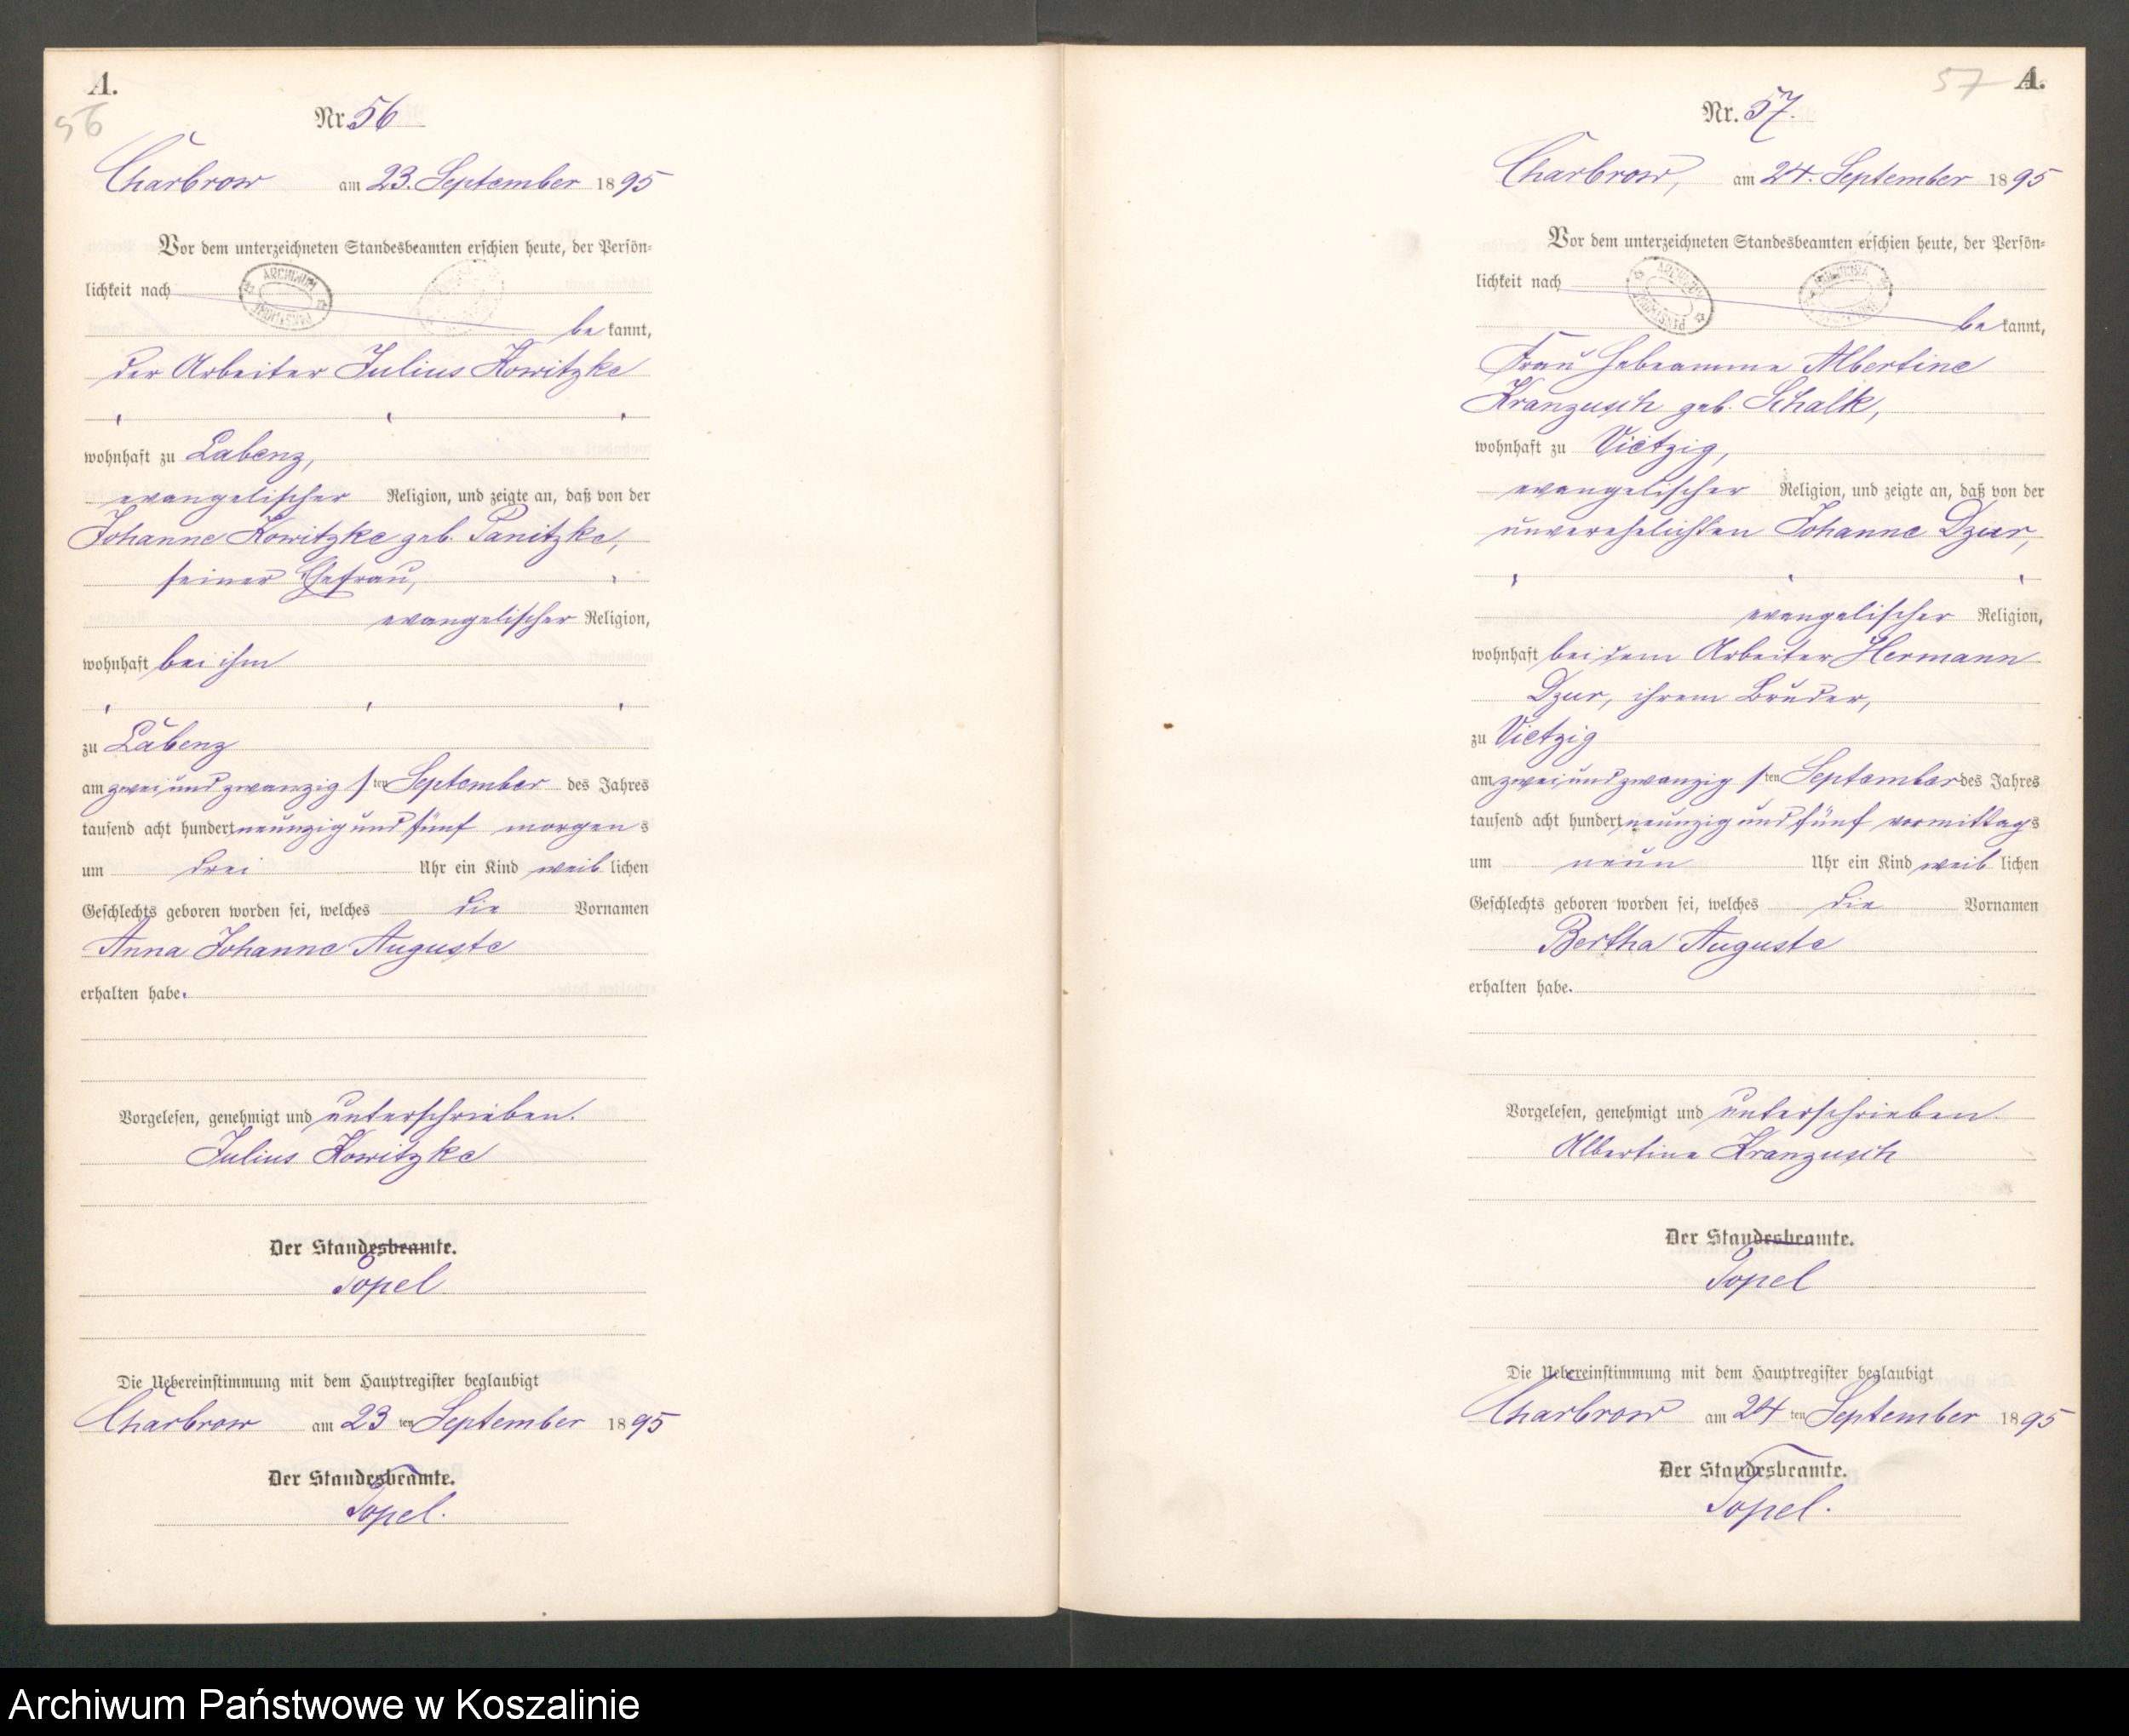 A.
56
Nr. 56
Charbrow am 23. September 1895
Vor dem unterzeichneten Standesbeamten erschien heute, der Persön-
lichkeit nach
be kannt,
der Arbeiter Julius Kowitzke
wohnhaft zu Labenz,
evangelischer Religion, und zeigte an, daß von der
Johanne Kowitzke geb. Panitzke,
seiner Ehefrau,
evangelischer Religion,
wohnhaft bei ihm
zu Labenz
am zwei und zwanzig sten September des Jahres
tausend acht hundert neunzig und fünf morgens
um drei Uhr ein Kind weiblichen
Geschlechts geboren worden sei, welches die Vornamen
Anna Johanne Auguste
erhalten habe.
Vorgelesen, genehmigt und unterschrieben.
Julius Kowitzke
Der Standesbeamte.
Topel
Die Uebereinstimmung mit dem Hauptregister beglaubigt
Charbrow am 23 ten September 1895
Der Standesbeamte.
Topel.
57 A.
Nr. 57.
Charbrow, am 24. September 1895
Vor dem unterzeichneten Standesbeamten erschien heute, der Persön-
lichkeit nach
be kannt,
Frau Hebeamme Albertine
Kranzusch geb. Schalk,
wohnhaft zu Vietzig,
evangelischer Religion, und zeigte an, daß von der
unverehelichten Johanne Dzur,
evangelischer Religion,
wohnhaft bei dem Arbeiter Hermann
Dzur, ihrem Bruder,
zu Vietzig
am zwei und zwanzig sten September des Jahres
tausend acht hundert neunzig und fünf vormittags
um neun Uhr ein Kind weiblichen
Geschlechts geboren worden sei, welches die Vornamen
Bertha Auguste
erhalten habe.
Vorgelesen, genehmigt und unterschrieben.
Albertine Kranzusch
Der Standesbeamte.
Topel
Die Uebereinstimmung mit dem Hauptregister beglaubigt
Charbrow am 24 ten September 1895
Der Standesbeamte.
Topel.
Archiwum Państwowe w Koszalinie